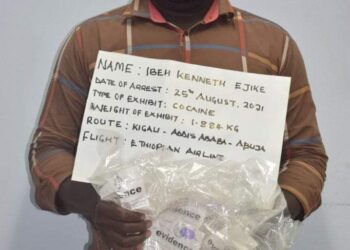 NAME: IBEH KENNETH EJIKE
DATE OF ARREST: 25th AUGUST, 2021
TYPE OF EXHIBIT: COCAINE
WEIGHT OF EXHIBIT: 1.884 KG
ROUTE: KIGALI - ADDIS ABABA - ABUJA
FLIGHT: ETHIOPIAN AIRLINE
evidence
evidence